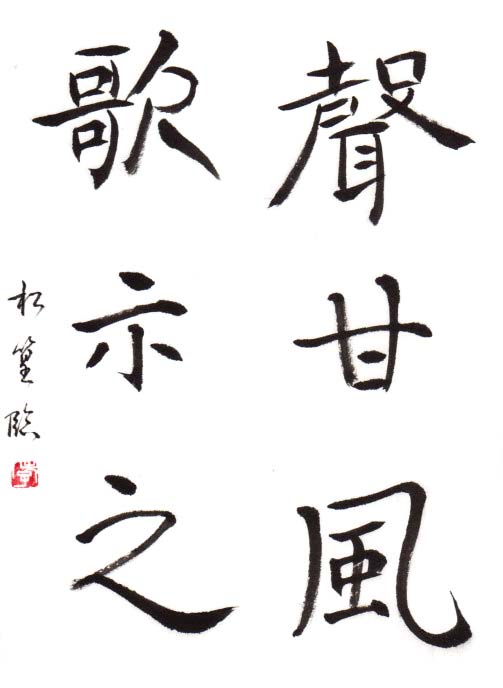 聲甘風
歌示之
松篁臨